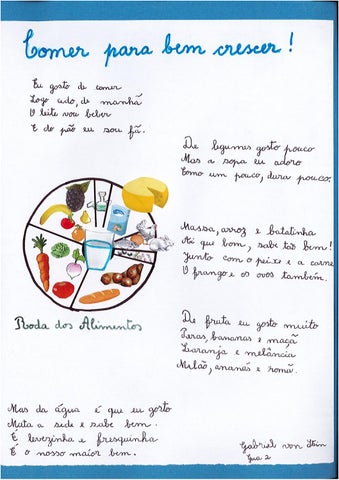 Comer para bem crescer!
Eu gosto de comer
Logo cedo, de manhã
O leite vou beber
E do pão eu sou fã.
De legumes gosto pouco
Mas a sopa eu adoro
Como um pouco, dura pouco.
Massa, arroz e batatinha
Ai que bom, sabe tão bem!
Junto com o peixe e a carne
O frango e os ovos também.
Roda dos Alimentos
De fruta eu gosto muito
Peras, bananas e maçã
Laranja e melância
Melão, ananás e romã.
Mas da água é que eu gosto
Mata a sede e sabe bem.
É levezinha e fresquinha
É o nosso maior bem.
Gabriel von
2